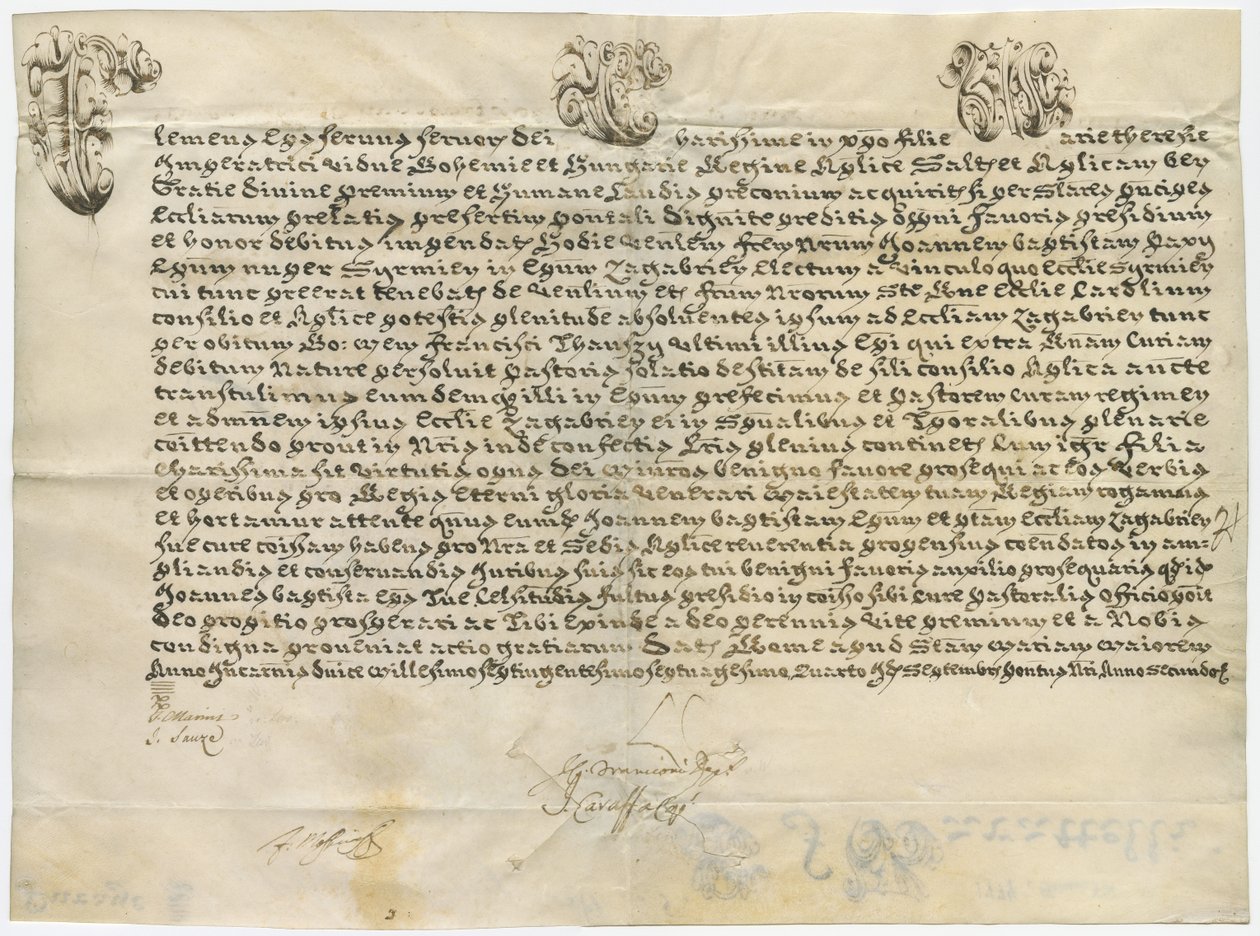 Clemens Eps servus servor Dei Charissime in Xpo filie Marie Theresie
Imperatrici Vidue Bohemie et Hungarie Regine Aplice Saltem et Aplicam ben
Gratie divine premium et Humane Laudis preconium acquirit si per Slares pncipes
Eccliarum prelatis presertim pontali dignite preditis oppni favoris presidium
et honor debitus impendat Hodie Venlem frem Nrum Joannem baptistam Paxy
Epum nuper Syrmien in Epum Zagabrien Electum a Vinculo quo Ecclie Syrmien
cui tunc preerat tenebat de Venlium et frum Nrorum Ste Rne Ecclie Cardlium
consilio et Aplice potestis plenitude absolventes ipsum ad Eccliam Zagabrien tunc
per obitum Bo: Mem Francisci Thauszy Ultimi illius Epi qui extra Rnam Curiam
debitum Nature persolvit pastoris solatio destitam de sili consilio Aplica aucte
transtulimus eumdemq illi in Epum prefecimus et Pastorem curam regimen
et admnem ipsius Ecclie Zagabrien ei in Spualibus et Tporalibus plenarie
coittendo prout in Nris inde confectis Lris plenius continet Cum igr filia
Charissima sit Virtutis opus Dei Minros benigno favore prosequi ac eos Verbis
et operibus pro Regis Eterni gloria Venerari Maiestatem tuam Regiam rogamus
et hortamur attente qnus eumd Joannem baptistam Epum et ptam Eccliam Zagabrien
sue cure coissam habens pro Nra et Sedis Aplice reverentia propensius coendatos in am=
pliandis et conservandis Juribus suis sic eos tui benigni favoris auxilio prosequaris qd id
Joannes baptista Eps Tue Celsitudis fultus presidio in coisso sibi Cure Pastoralis Officio poit
Deo propitio prosperari ac Tibi Exinde a Deo perennis Vite premium et a Nobis
condigna proveniat actio gratiarum Dat Rome apud Stam Mariam Maiorem
Anno Incarnis dnice Millesimo Septingentesimo septuagesimo, Quarto Id Septembris Pontus Nri Anno Secundo
P. Marini
J. Sauze
J. Caraffa